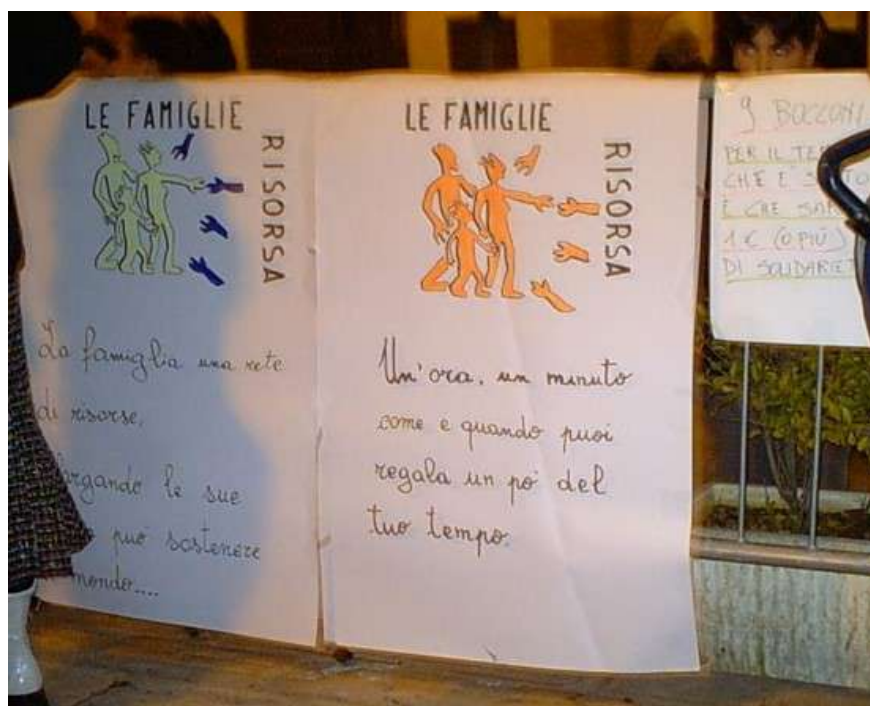 LE FAMIGLIE
RISORSA
La famiglia una rete
di risorse,
le sue
può sostenere
mondo....
LE FAMIGLIE
RISORSA
Un'ora, un minuto
come e quando puoi
regala un po' del
tuo tempo.
9 BOCCONI
PER IL
CHE E'
E CHE
1 € (O PIÙ)
DI